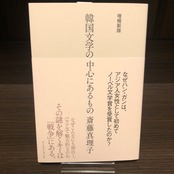 増補新版
韓国文学の中心にあるもの 斎藤真理子
なぜハン・ガンは、
アジア人女性として初めて
ノーベル文学賞を受賞したのか?
その謎を解くキーは
「戦争」にある。